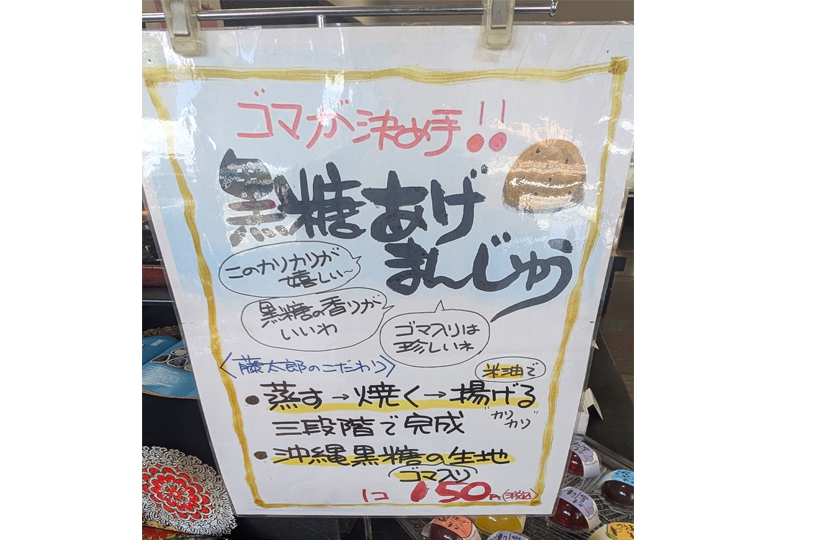 ゴマが決め手!!
黒糖あげ
まんじゅう
このカリカリが
嬉しい〜
黒糖の香りが
いいわ
ゴマ入りは
珍しいネ
〈藤太郎のこだわり〉
米油で
・蒸す→焼く→揚げる
"カリカリ"
三段階で完成
・沖縄黒糖の生地
ゴマ入り
1コ 150円(税込)